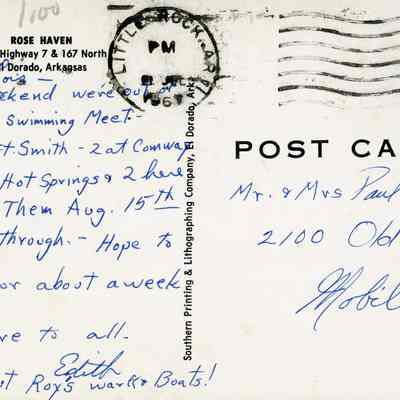 1/00
ROSE HAVEN
Highway 7 & 167 North
El Dorado, Arkansas
weekend were out of
Swimming Meet.
Ft Smith - 2 at Conway
Hot Springs & 2 here
Them Aug. 15th
through. - Hope to
or about a week
to all.
Edith
Roy's work & Boats!
LITTLE ROCK, AR
PM
1967
Southern Printing & Lithographing Company, El Dorado, Ark
POST CA
Mr. & Mrs Paul
2100 Old
Mobil